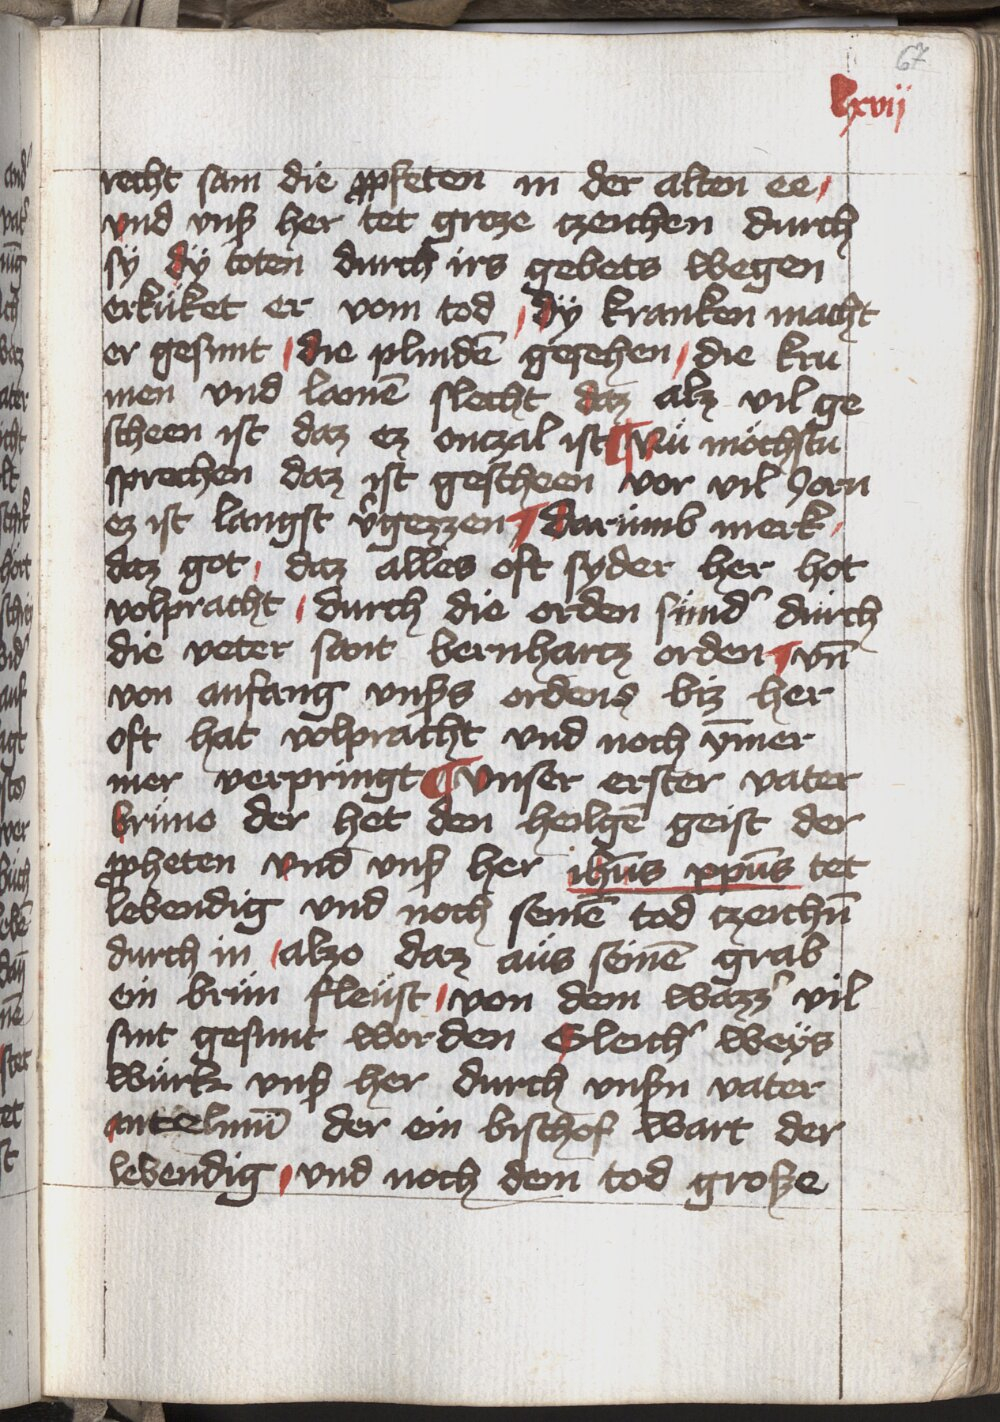 67
lxvij
recht sam die ꝓpfeten in der alten ee
vnd vnß her tet groze czeichen durch
sy dÿ toten durch irs gebets wegen
erküket er vom tod dÿ kranken macht
er gesunt die plindē gesehen die kru
men vnd lamē slecht daz alz vil ge
scheen ist daz ez onczal ist ¶ Nü möchstu
sprechen daz ist gescheen vor vil Jorn
ez ist langst v̂gezzen ¶ Darümb merk
daz got daz alles oft syder her hot
volpracht durch die orden sünd' dürch
die veter sant bernhartz orden vn̄
von anfang vnßs ordens biz her
oft hat volpracht vnd noch ȳmer
mer verpringt ¶ Vnser erster vater
brüno der het den heilgē geist der
ꝓpheten vnd vnß her ihūs xpūs tet
lebendig vnd noch seinē tod czeichn̄
durch in alzo daz aüs seinē grab
ein brün fleüst von dem wazz' vil
sint gesunt worden Gleich' weÿs
würkt vnß her durch vnßn vater
antelmū der ein bischof wart der
lebendig vnd noch dem tod große